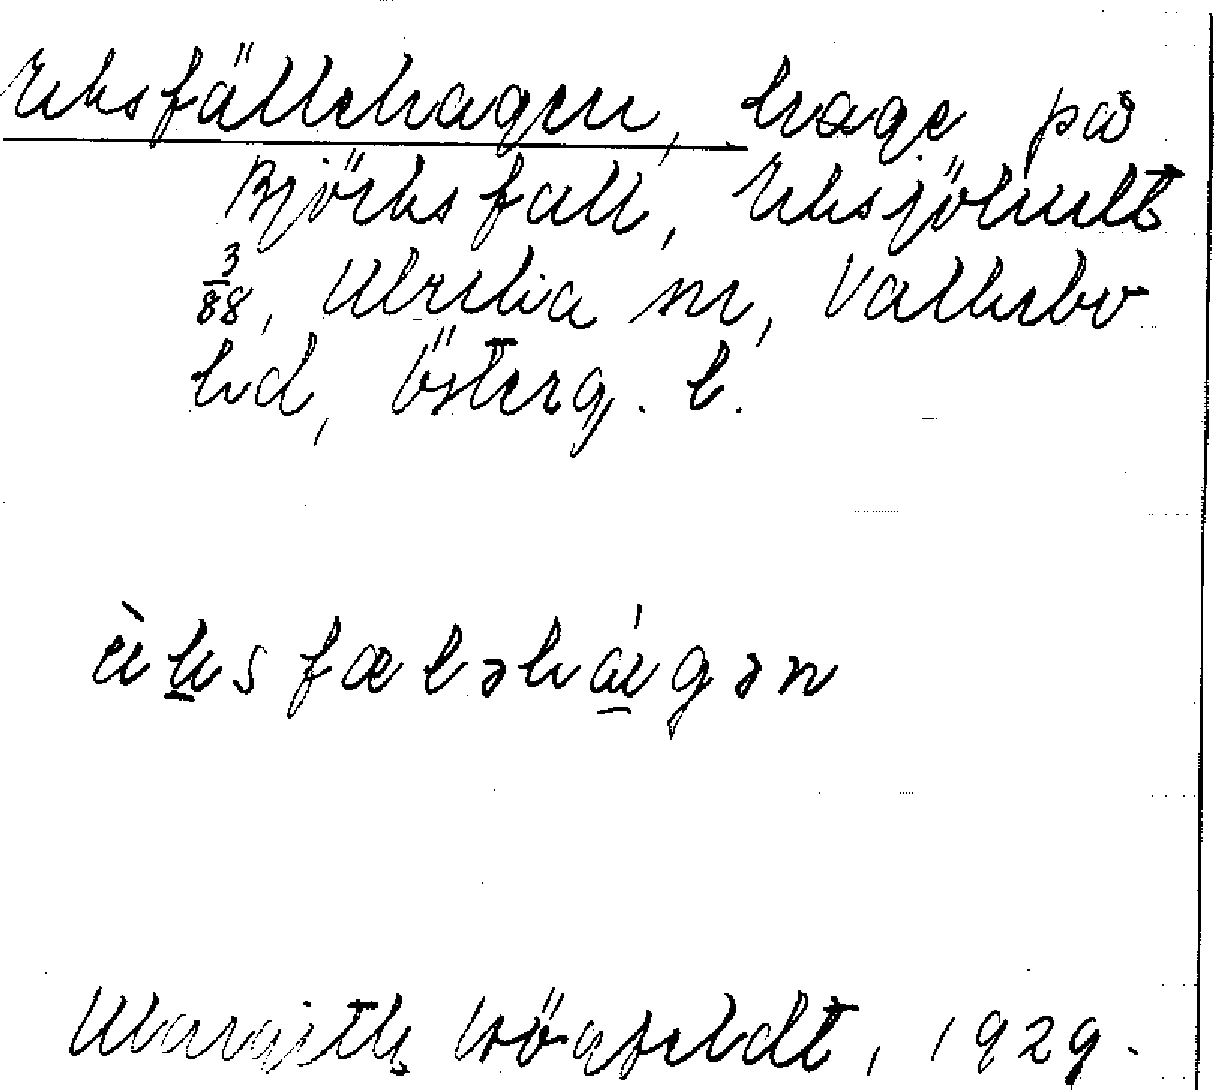 Eksfällehagen, hage på
Björksfall, Eksjöhult
3/88, Ulrika sn, Valkebo
hd, Österg. l.
ùksfæləhágən
Margith Högfeldt, 1929.